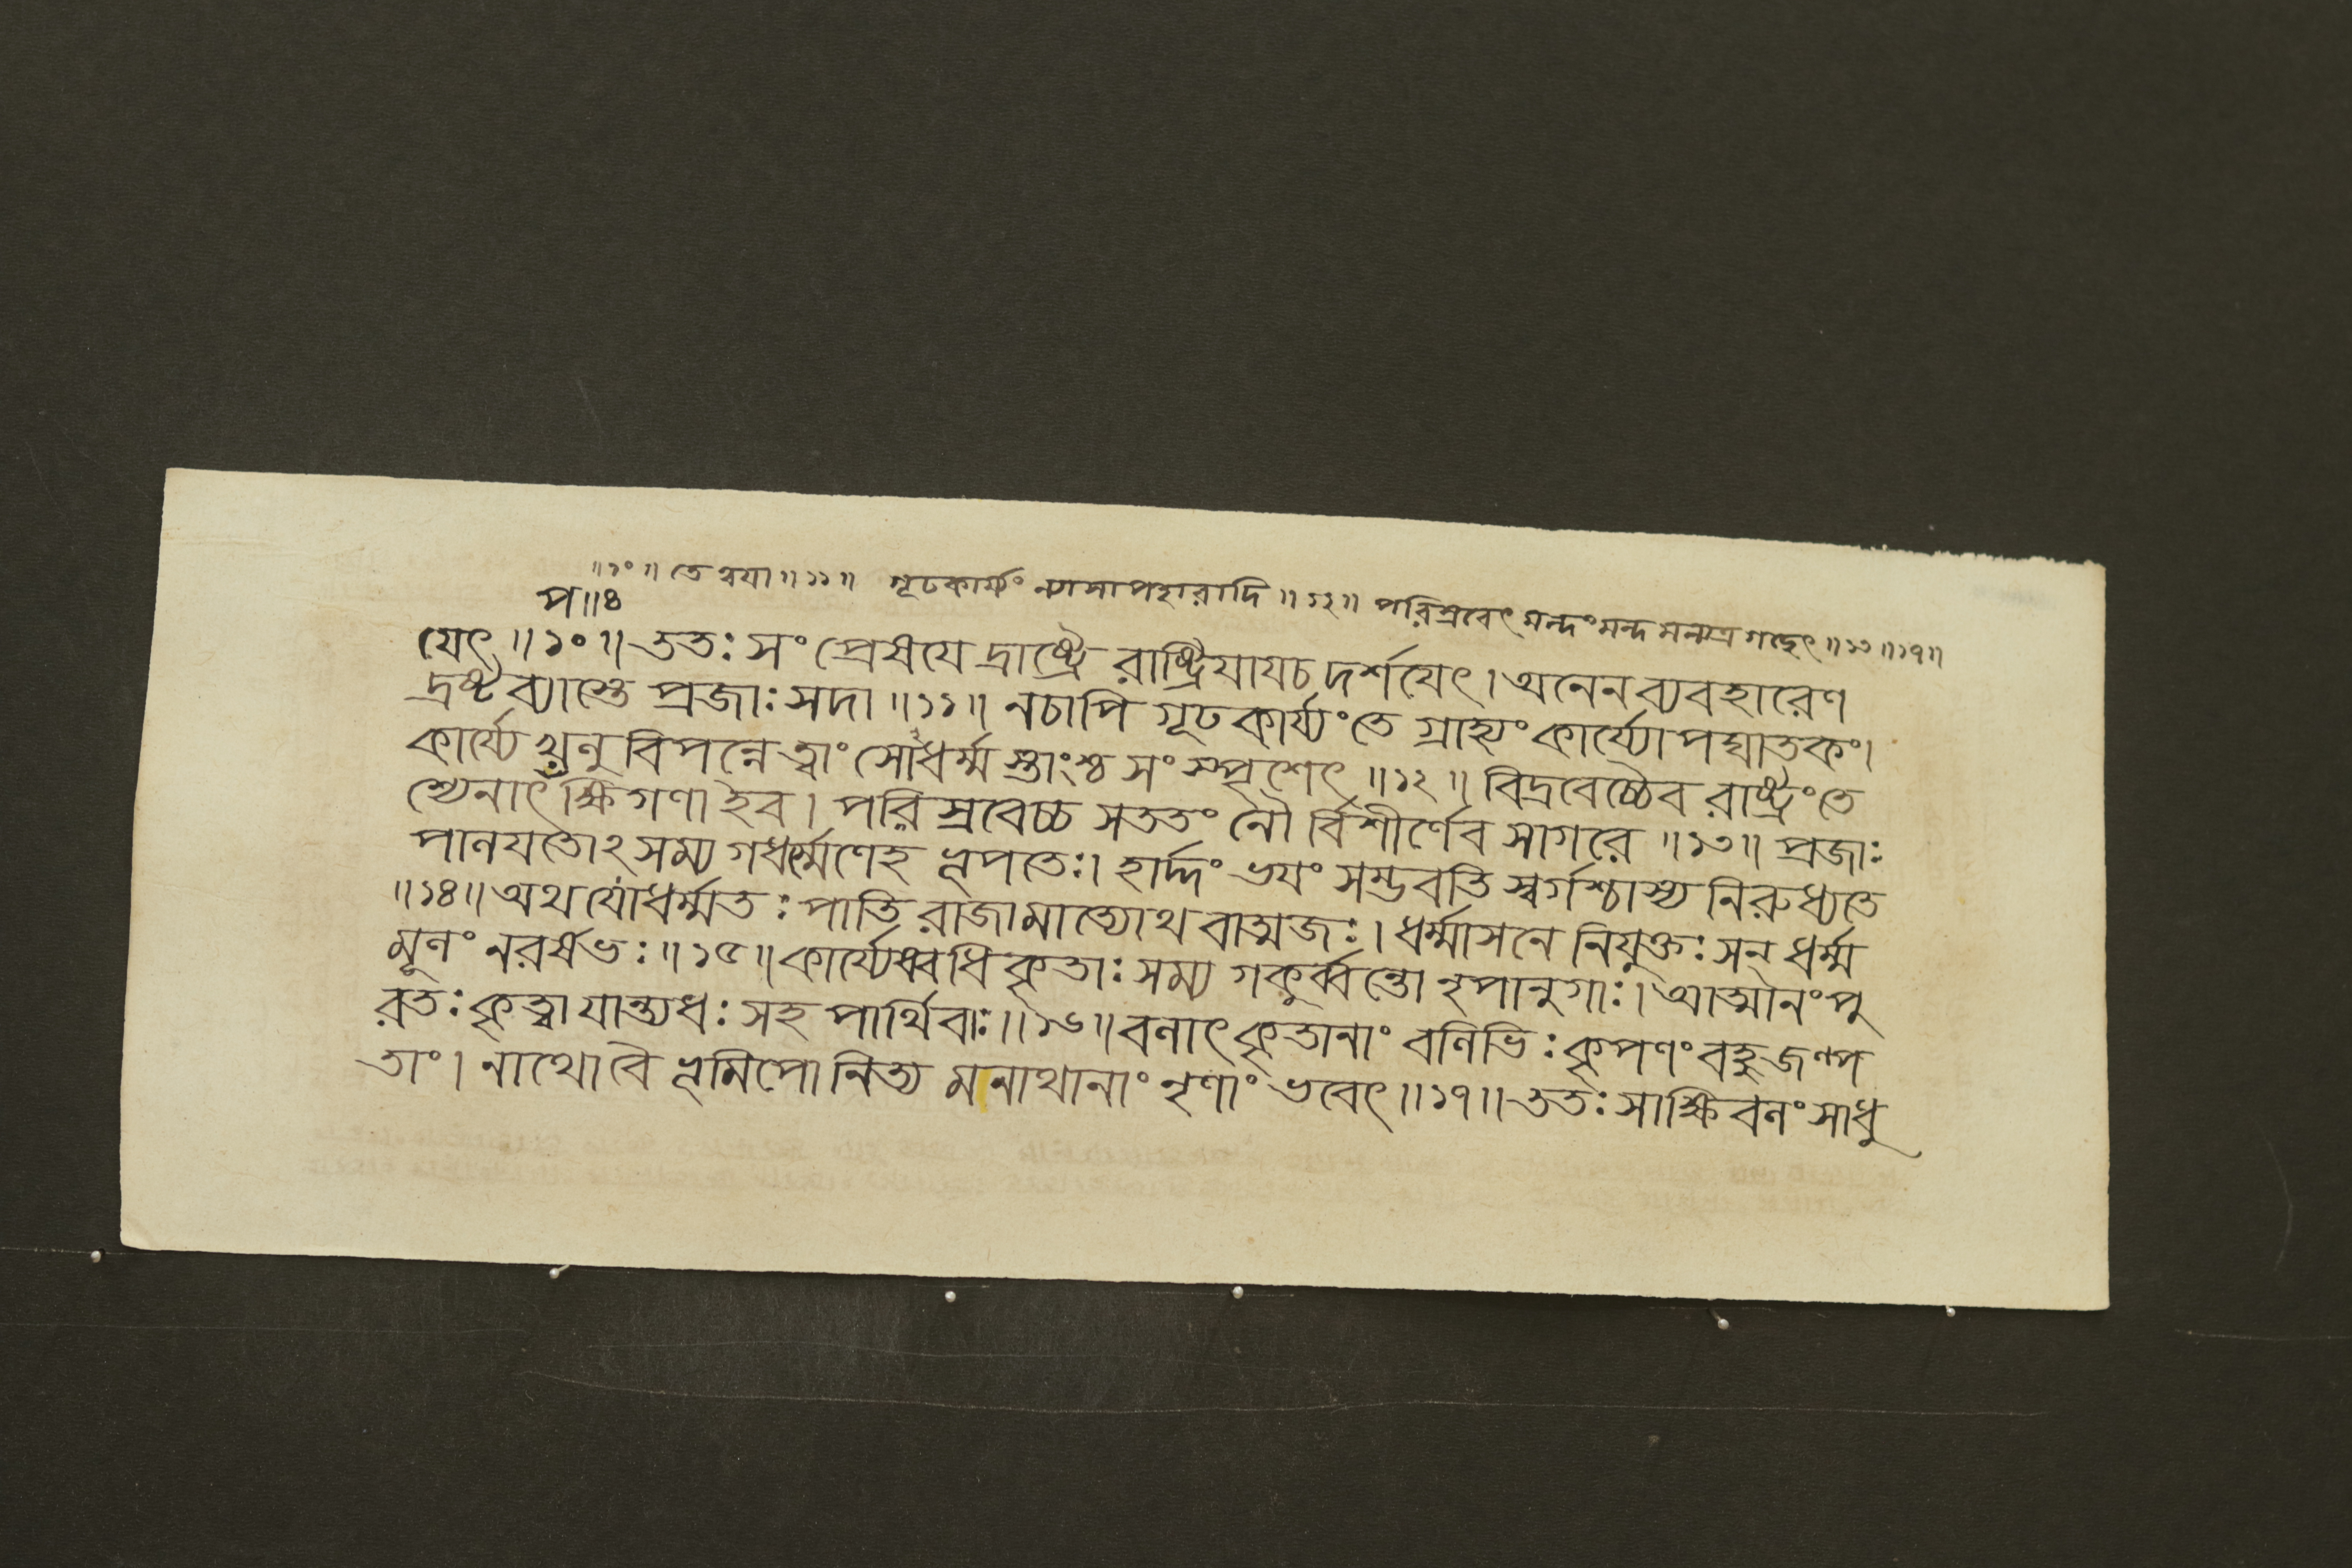 ॥১০॥ তে ত্বযা॥১১॥ গূঢকার্য্যং ন্যাসাপহারাদি॥১২॥ পরিস্রবেৎ মন্দংমন্দ মন্যত্র গচ্ছেৎ॥১৩॥১৭॥
প॥৪
যেৎ॥১০॥ততঃ সং প্রেষযে দ্রাষ্ট্রে রাষ্ট্রিযাযচ দর্শযেৎ।অনেন ব্যবহারেণ
দ্রষ্টব্যাস্তে প্রজাঃ সদা॥১১॥ নচাপি গূঢকার্য্যংতে গ্রাহ্যং কার্য্যোপঘাতকং।
কার্য্যে খনু বিপন্নে ত্বাং সোধর্ম্ম স্তাংশ্চ সংস্পৃশেৎ॥১২॥ বিদ্রবেচ্চৈব রাষ্ট্রংতে
শ্যেনাৎপক্ষিগণা ইব। পরিস্রবেচ্চ সততং নৌর্বিশীর্ণেব সাগরে॥১৩॥ প্রজাঃ
পানযতোঽসম্যগধর্ম্মণেহ ভূপতেঃ। হার্দ্দং ভযং সম্ভবতি স্বর্গশ্চাস্য নিরুধ্যতে
॥১৪॥অথ যোধর্ম্মতঃ পাতি রাজামাত্যোথ বাত্মজঃ। ধর্ম্মাসনে নিযুক্তঃসন্ ধর্ম্ম
মূনং নরর্ষভঃ॥১৫॥কার্য্যেষ্বধিকৃতাঃ সম্যগকুর্ব্বন্তো নৃপানুগাঃ। আত্মানং পু
রতঃ কৃত্বা যান্ত্যধঃ সহ পার্থিবাঃ॥১৬॥বনাৎকৃতানাং বনিভিঃ কৃপণং বহুজল্প
তাং। নাথোবৈ ভূমিপো নিত্য মনাথানাং নৃণাং ভবেৎ॥১৭॥ততঃ সাক্ষিবনং সাধু